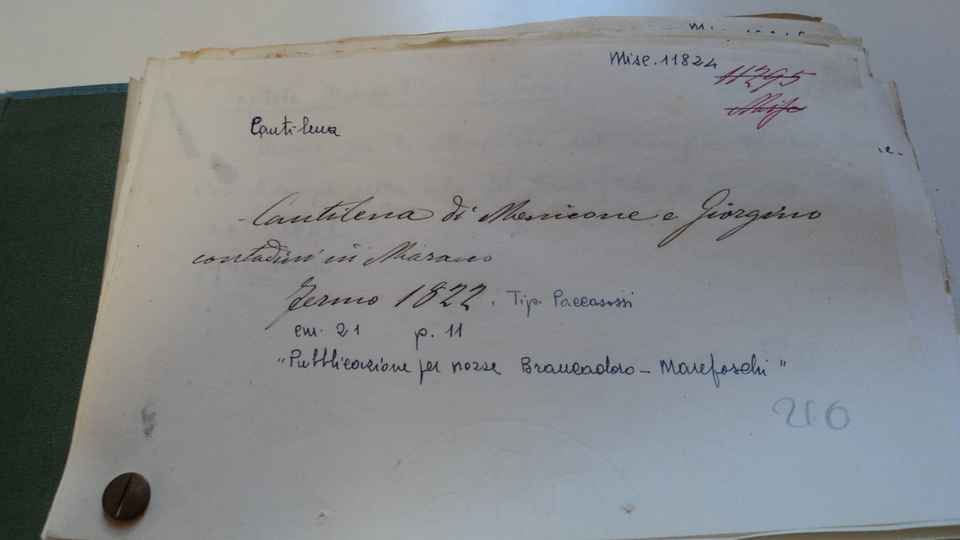 Misc. 11824
11295
Misc
Cantilena
- Cantilena di Menicone e Giorgino
contadini in Marano
Fermo 1822. Tip. Paccasassi
cm. 21 p. 11
"Pubblicazione per nozze Brancadoro - Marefoschi"
210